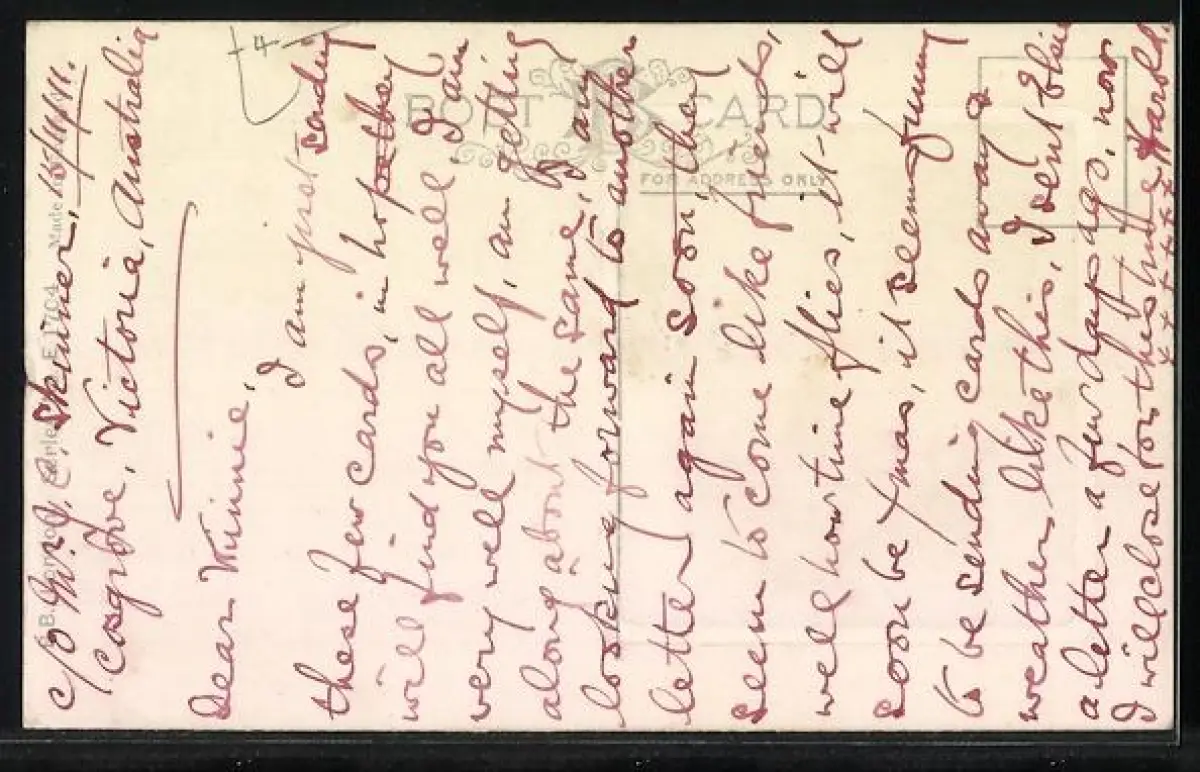 c/o Mr J. C. Skinner, 15/11/11.
Cosgrove, Victoria, Australia
Dear Winnie,
I am just sending
these few cards, in hope they
will find you all well, I am
very well myself, am getting
along about the same, I am
looking forward to another
letter again soon, they
seem to come like friends,
well how time flies, it will
soon be Xmas, it seems funny
to be sending cards away &
weather like this, I sent Elsie
a letter a few days ago, now
I will close for this time Harold.
x x x x x x x
4
POST CARD
FOR ADDRESS ONLY